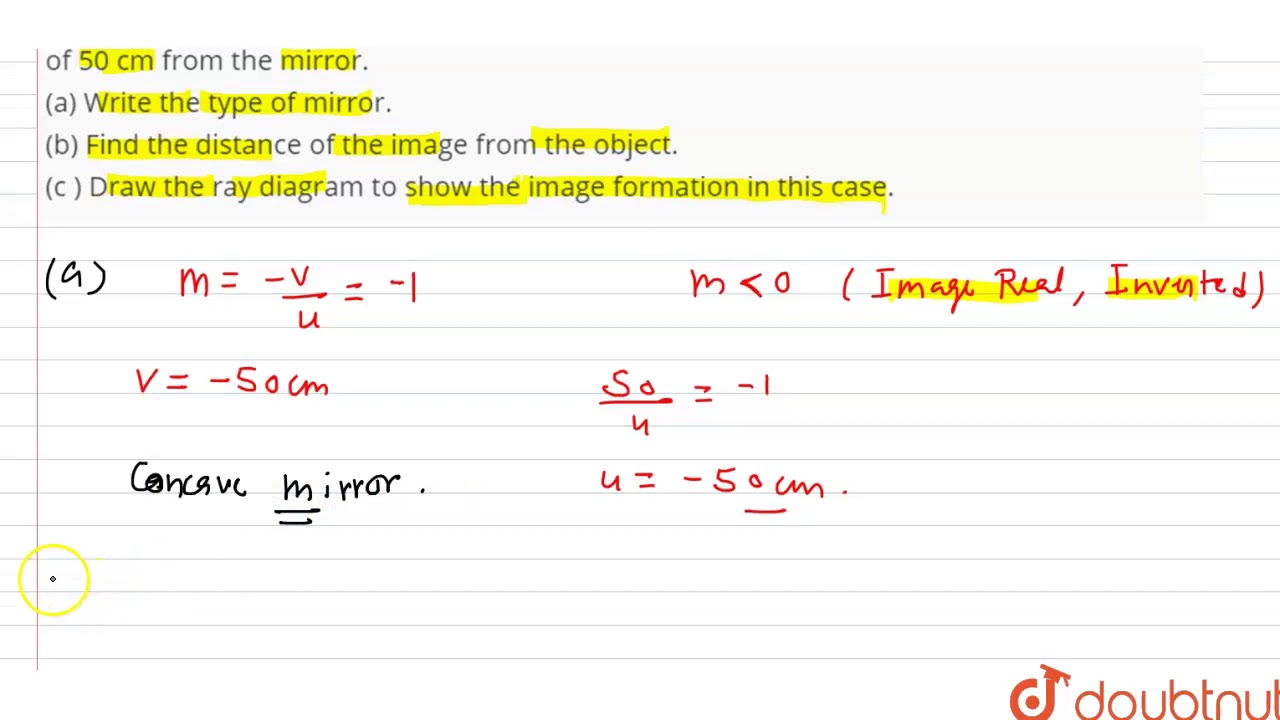 of 50 cm from the mirror.
(a) Write the type of mirror.
(b) Find the distance of the image from the object.
(c ) Draw the ray diagram to show the image formation in this case.
(a) m = -v/u = -1 m < 0 ( Image Real, Inverted)
v = -50cm 50/u = -1
Concave mirror. u = -50 cm.
doubtnut